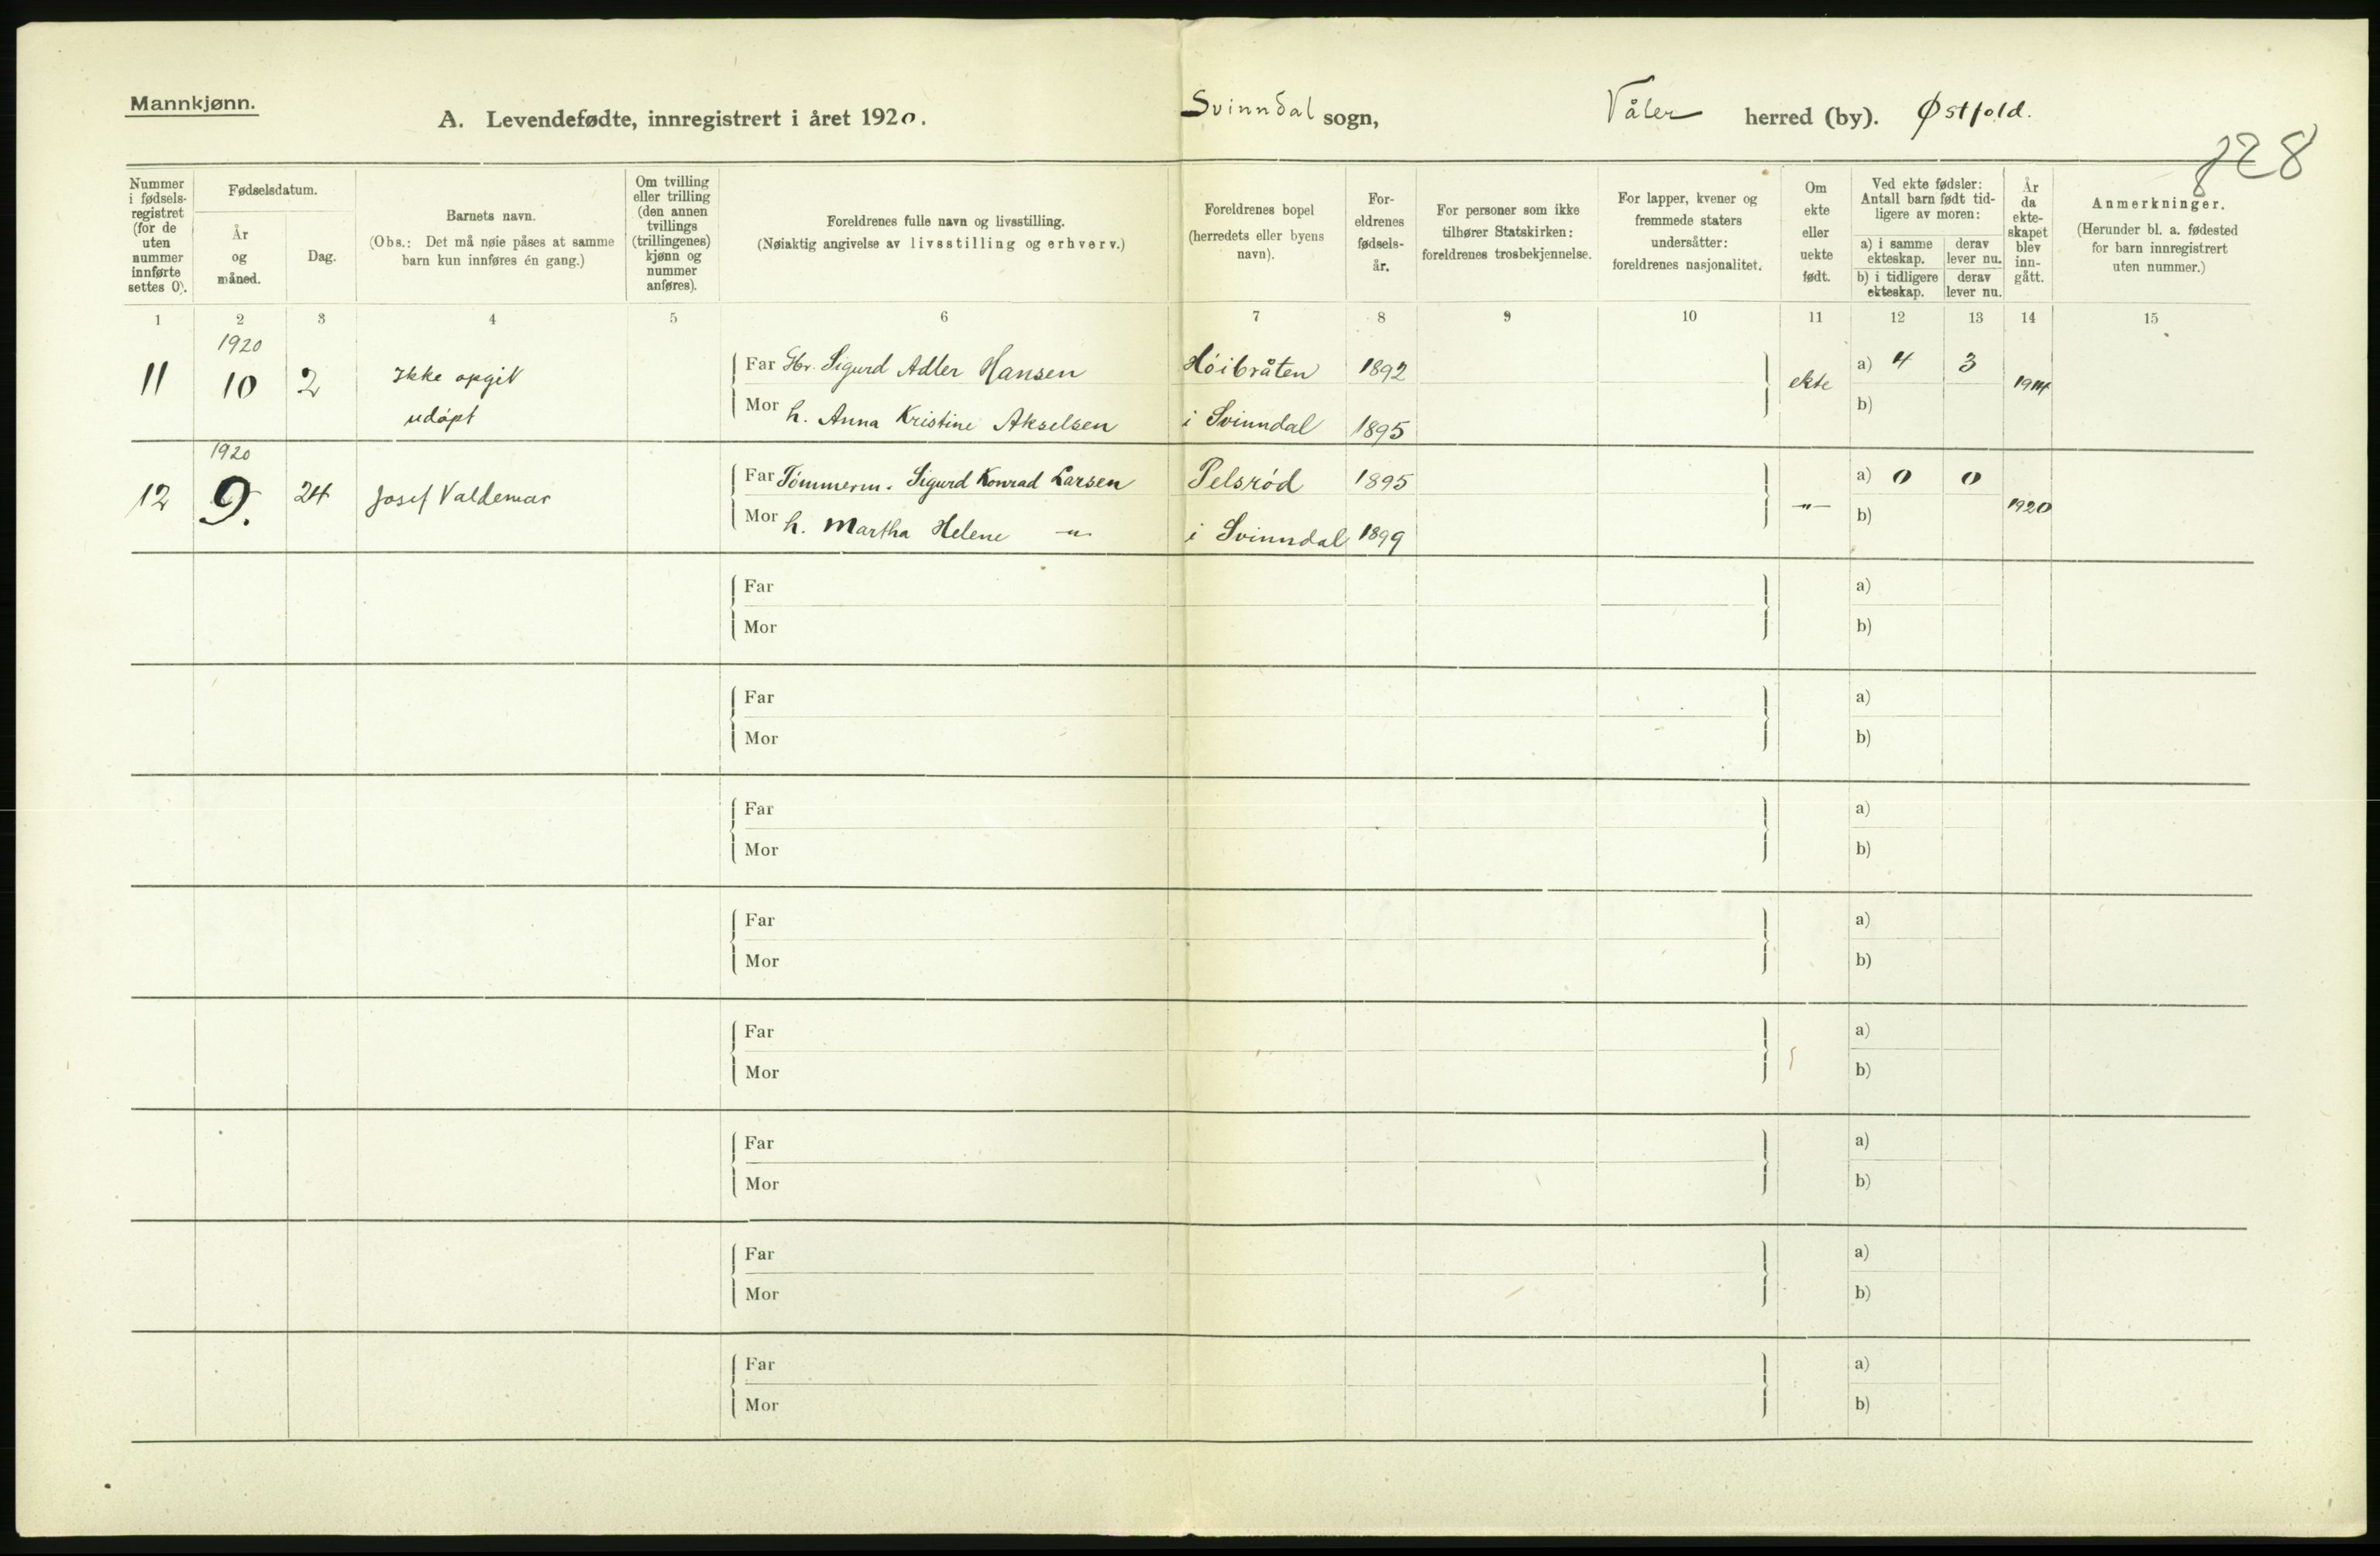 Mannkjønn.
A. Levendefødte, innregistrert i året 1920. Svinndal sogn, Våler herred (by). Østfold.
828
Nummer i fødsels-registret (for de uten nummer innførte settes 0).
Fødselsdatum.
År og måned.
Dag.
Barnets navn.
(Obs.: Det må nøie påses at samme barn kun innføres én gang.)
Om tvilling eller trilling (den annen tvillings (trillingenes) kjønn og nummer anføres).
Foreldrenes fulle navn og livsstilling.
(Nøiaktig angivelse av livsstilling og erhverv.)
Foreldrenes bopel (herredets eller byens navn).
For-eldrenes fødsels-år.
For personer som ikke tilhører Statskirken: foreldrenes trosbekjennelse.
For lapper, kvener og fremmede staters undersåtter: foreldrenes nasjonalitet.
Om ekte eller uekte født.
Ved ekte fødsler: Antall barn født tid-ligere av moren:
a) i samme ekteskap.
derav lever nu.
b) i tidligere ekteskap.
derav lever nu.
År da ekte-skapet blev inn-gått.
Anmerkninger.
(Herunder bl. a. fødested for barn innregistrert uten nummer.)
1 2 3 4 5 6 7 8 9 10 11 12 13 14 15
1920
11 10 2 Ikke opgit
udøpt
Far Gbr. Sigurd Adler Hansen Høibråten 1892
Mor h. Anna Kristine Akselsen i Svinndal 1895
ekte a) 4 3 1914
b)
1920
12 9. 24 Josef Valdemar
Far Tømmerm. Sigurd Konrad Larsen Pelsrød 1895
Mor h. Martha Helene -"- i Svinndal 1899
-"- a) 0 0 1920
b)
Far a)
Mor b)
Far a)
Mor b)
Far a)
Mor b)
Far a)
Mor b)
Far a)
Mor b)
Far a)
Mor b)
Far a)
Mor b)
Far a)
Mor b)